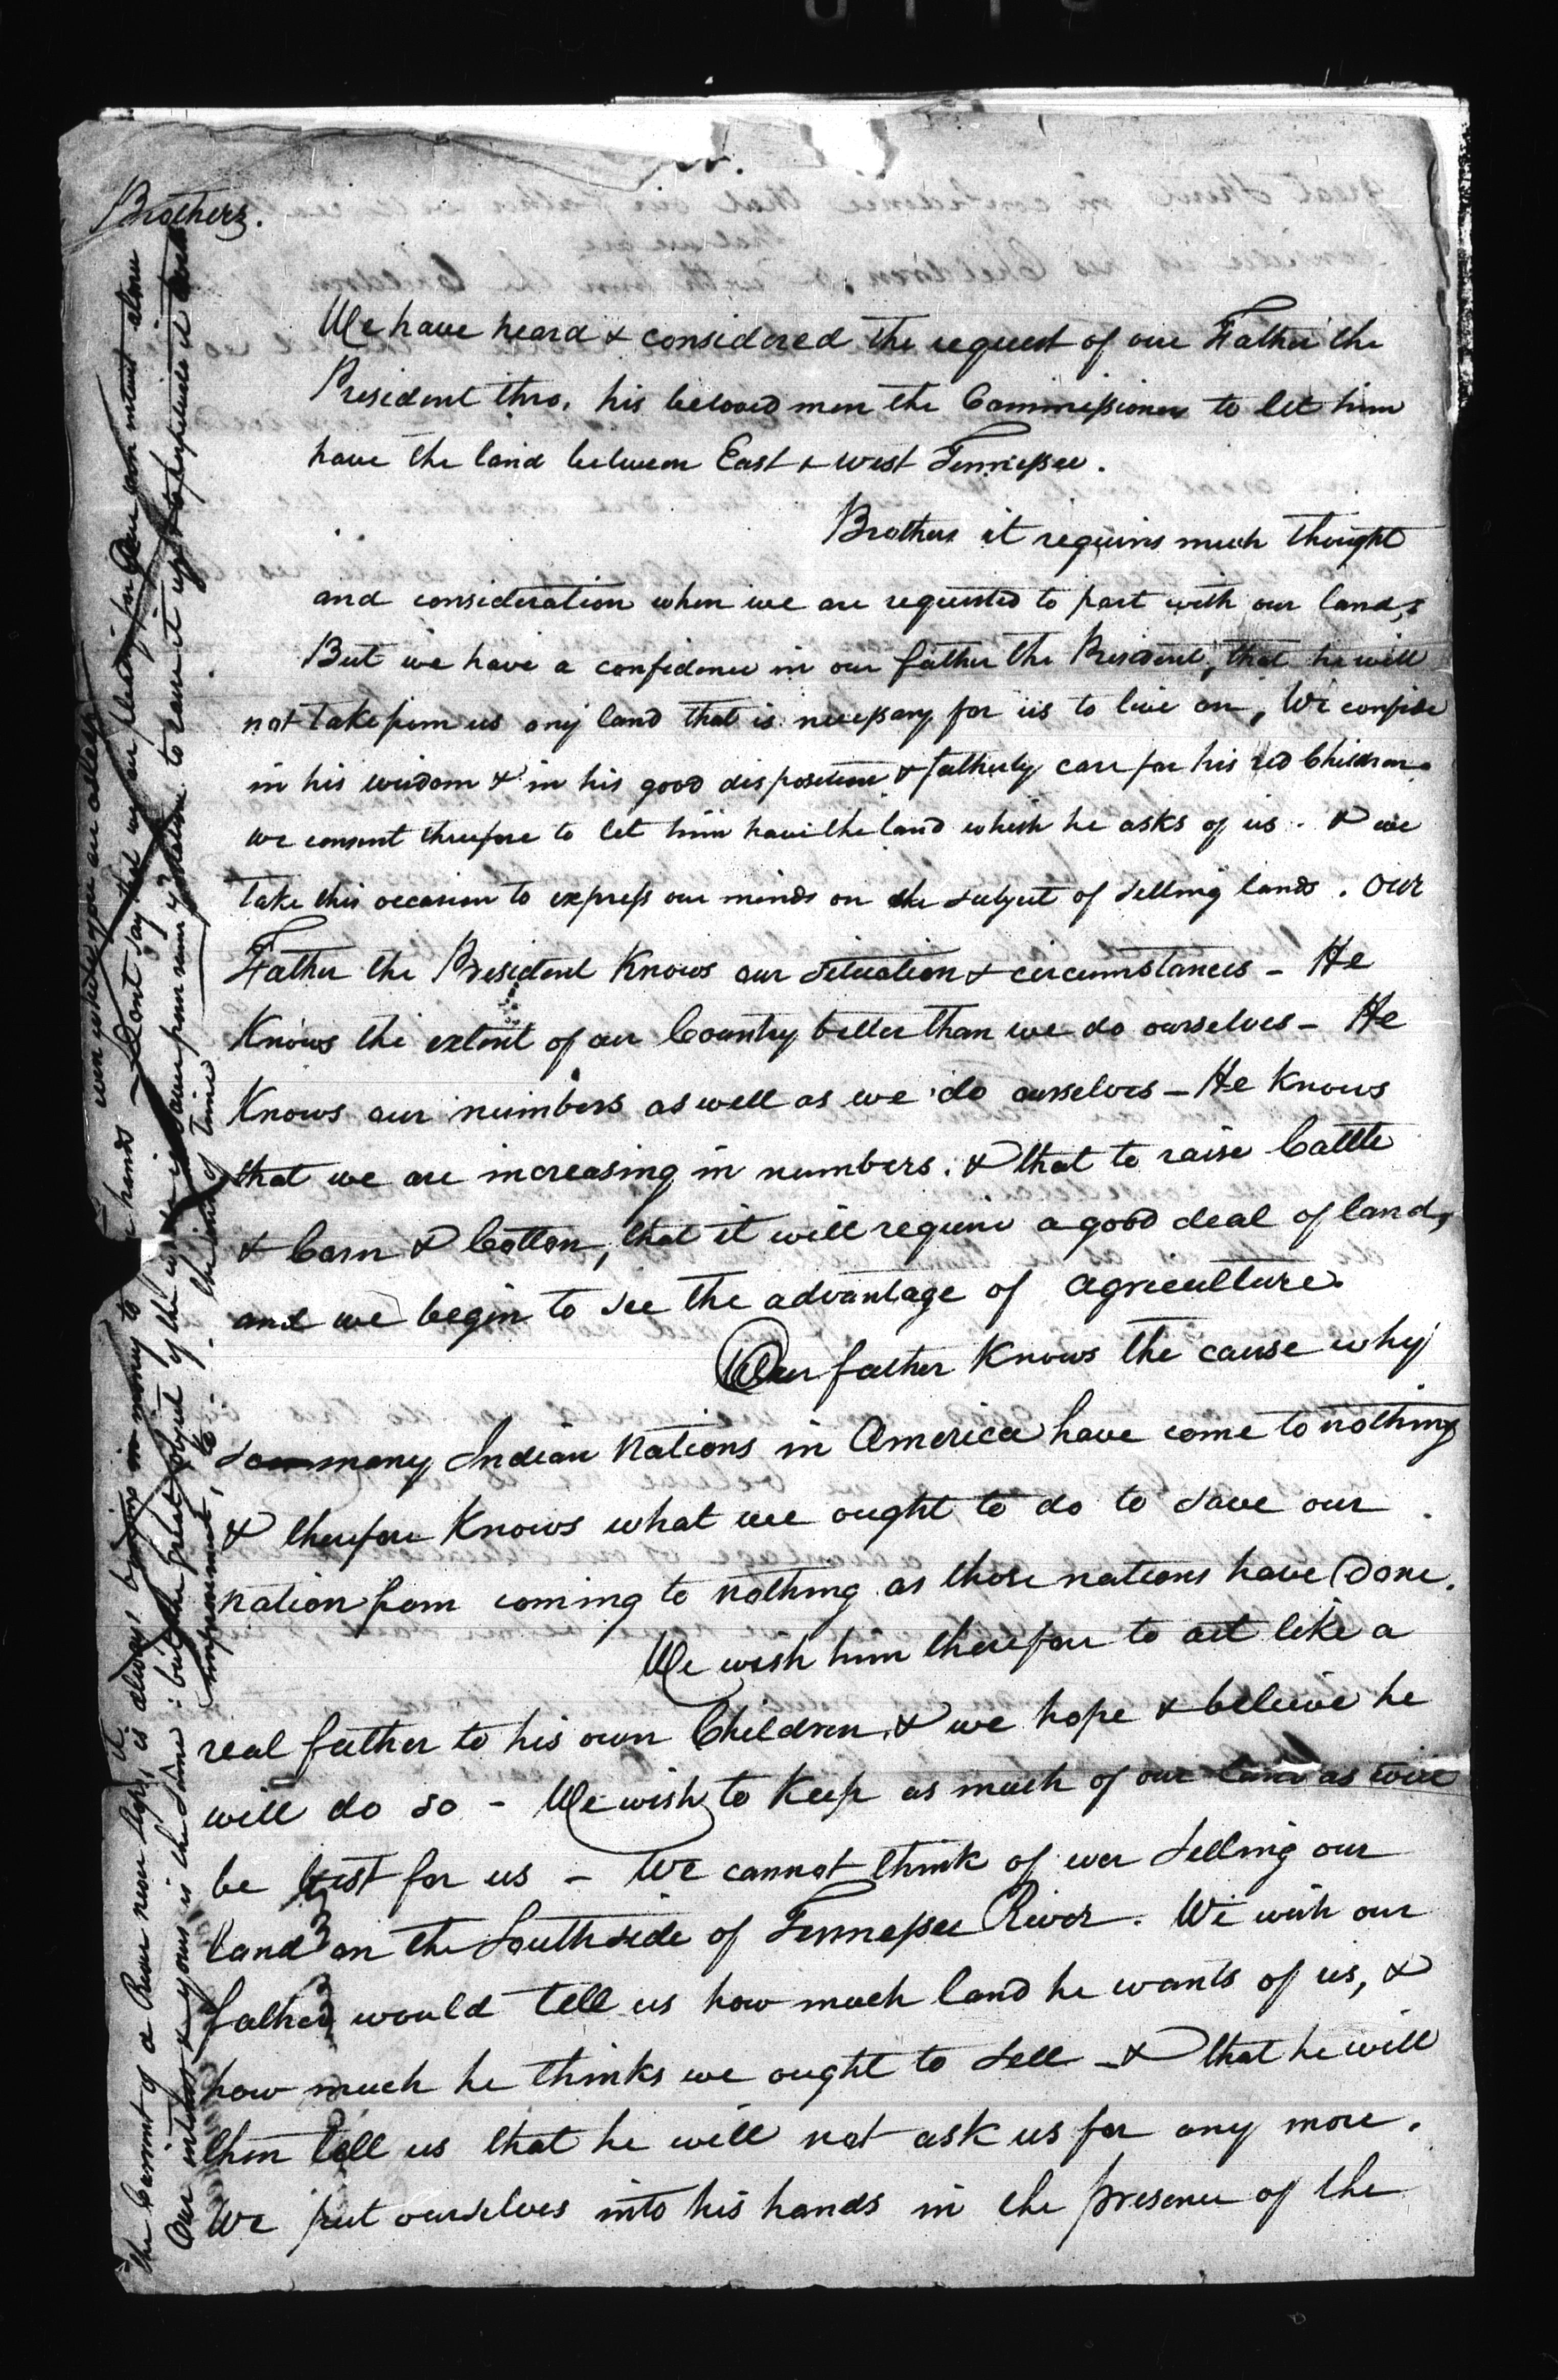 Brothers.
We have heard & considered the request of our Father the
President thro. his beloved men the Commissioners to let him
have the land between East & West Tennessee.
Brothers it requires much thought
and consideration when we are requested to part with our lands
But we have a confidence in our father the President, that he will
not take from us any land that is necessary for us to live on, We confide
in his wisdom & in his good disposition & fatherly care for his red Children.
we consent therefore to let him have the land which he asks of us. & we
take this occasion to express our minds on the subject of selling lands. Our
Father the President Knows our situation & circumstances - He
Knows the extent of our Country better than we do ourselves - He
Knows our numbers as well as we do ourselves - He Knows
that we are increasing in numbers. & that to raise Cattle
& Corn & Cotton, that it will require a good deal of land,
and we begin to see the advantage of agriculture.
Our father Knows the cause why
so many Indian Nations in America have come to nothing
& therefore Knows what we ought to do to save our
nation from coming to nothing as those nations have Done.
We wish him therefore to act like a
real father to his own Children, & we hope & believe he
will do so - We wish to Keep as much of our land as will
be best for us - We cannot think of ever selling our
land on the South side of Tennessee River. We wish our
father would tell us how much land he wants of us, &
how much he thinks we ought to sell - & that he will
then tell us that he will not ask us for any more.
We put ourselves into his hands in the presence of the
The Current of a River never stops, it is always bringing in money to hands
even while you are asleep
Dont say that we are pleading for our own interest alone
Our interest & yours is the same: but the great object of the whole is
to raise it up & to perpetuate it
improvement, &c. - the end of time